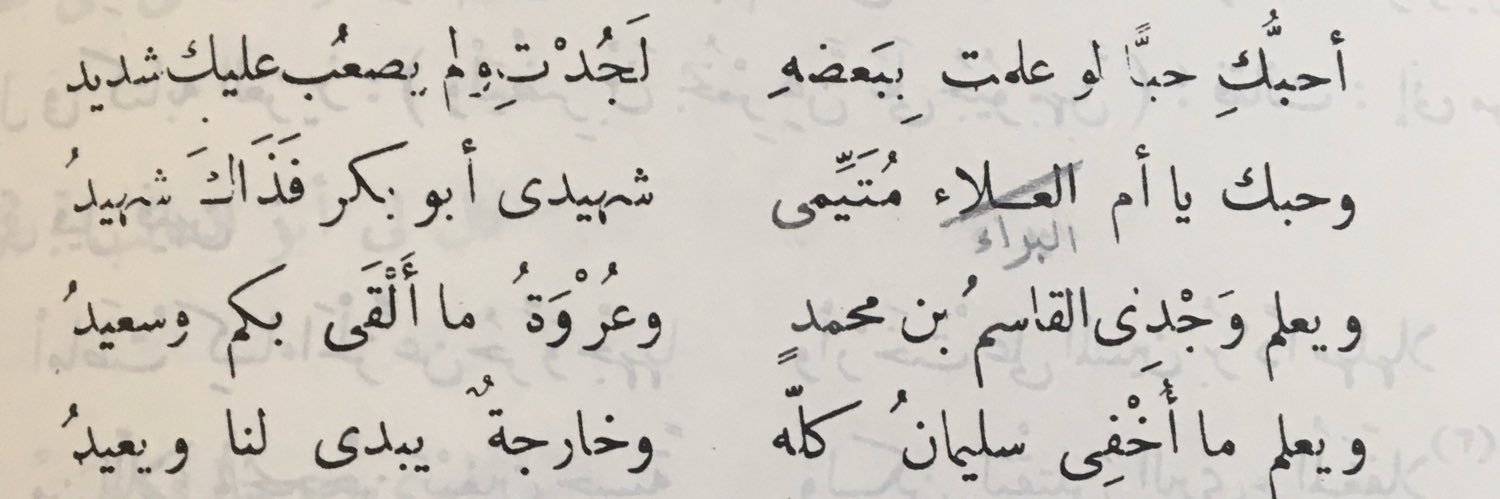 أحبُّكِ حبًّا لو علمت بِبَعضهِ لَجُدْتِ ولم يصعُب عليك شديد
وحبك يا أم العلاء مُتَيِّمى شهيدى أبو بكر فَذَاكَ شهيدُ
البراء
ويعلم وَجْدِى القاسمُ بن محمدٍ وعُرْوَةُ ما أَلْقَى بكم وسعيدُ
ويعلم ما أُخْفِى سليمانُ كلّه وخارجةٌ يبدى لنا ويعيدُ